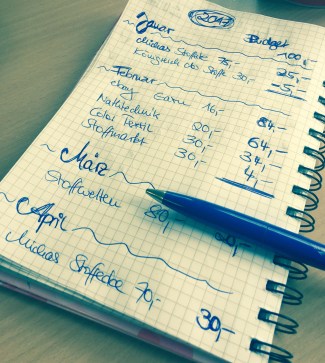 2017
Januar Budget
100,-
Michas Stoffecke 75,- 25,-
Königreich der Stoffe 30,- -5,-
~ Februar
ebay Garn 16,- 84,-
Nähtechnik 20,- 64,-
Color Textil 30,- 34,-
Stoffmarkt 30,- 4,-
~ März
Stoffwelten 80,- 20,-
~ April
Michas Stoffecke 70,- 30,-